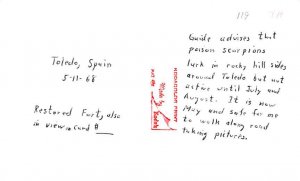 119
Toledo, Spain
5-11-68
Restored Fort, also
in view card #
Guide advises that
poison scorpions
lurk in rocky hill sides
around Toledo but not
active until July and
August. It is now
May and safe for me
to walk along road
taking pictures.
KODACOLOR PRINT
Made by Kodak